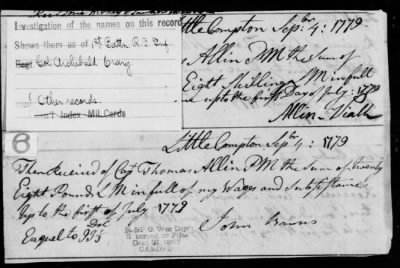 Investigation of the names on this record
Shows them as of 1st Battn R. I.
Regt. Col Archibald Crary
Other records
Index - Mil. Cards
Little Compton Sepbr 4: 1779
Allin PM the Sum of
Eight Shillings LM in full
up to the first Day of July: 1779
Allin - Viall
Little Compton Sepbr 4: 1779
Then Receivd of Cpt Thomas Allin PM the Sum of twenty
Eight Pounds LM in full of my Wages and Subsistance
up to the first of July 1779
Eaquel to
John
R & P O War Dep
1907
CARDED